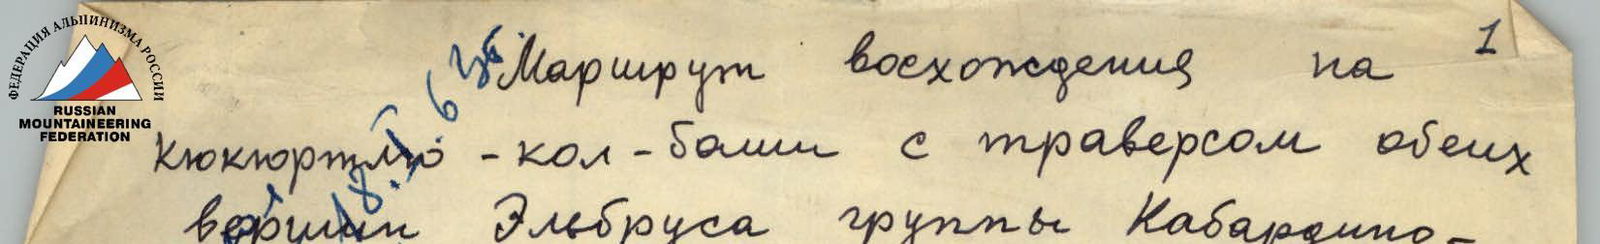 ФЕДЕРАЦИЯ АЛЬПИНИЗМА РОССИИ
RUSSIAN
MOUNTAINEERING
FEDERATION
1
Маршрут восхождения на
Кюкюртлю-кол-баши с траверсом обеих
вершин Эльбруса группы Кабардино-